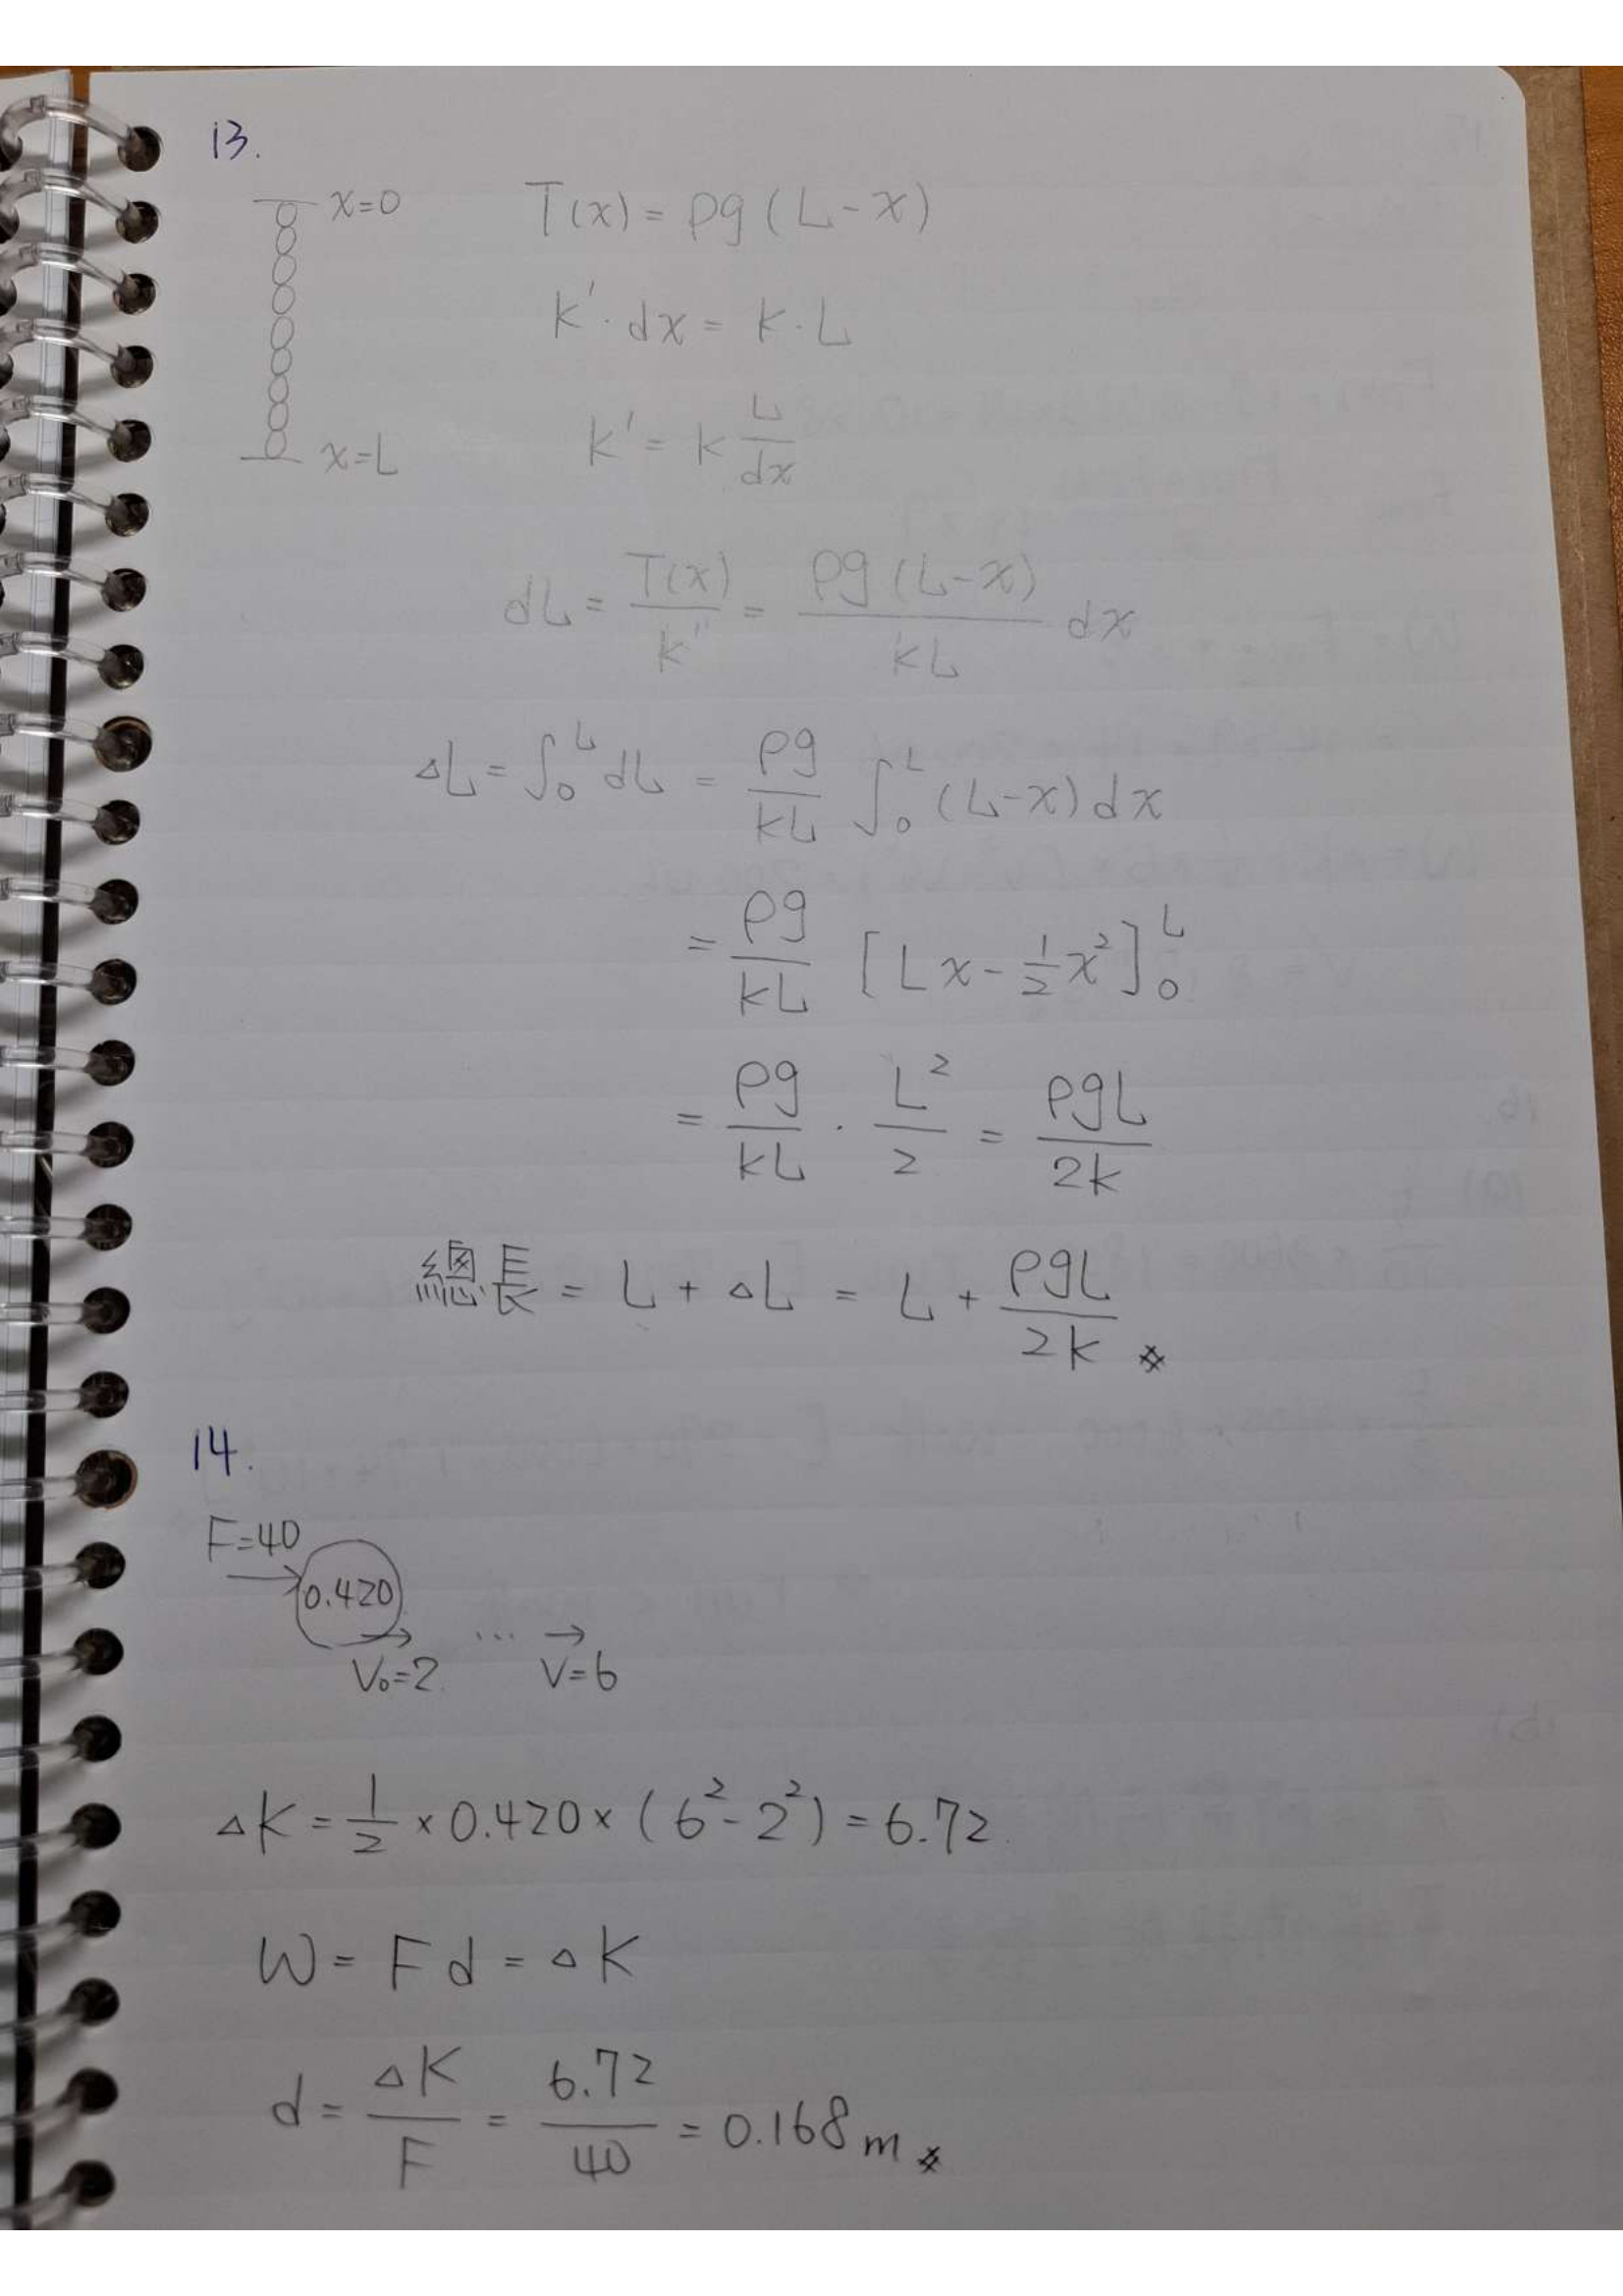 13.
x=0
T(x) = ρg (L-x)
k'·dx = k·L
x=L
k' = k L/dx
dL = T(x)/k'' = ρg (L-x)/kL dx
ΔL = ∫₀ᴸ dL = ρg/kL ∫₀ᴸ (L-x) dx
= ρg/kL [Lx - 1/2 x²]₀ᴸ
= ρg/kL · L²/2 = ρgL/2k
總長 = L + ΔL = L + ρgL/2k
14.
F=40
0.420
V₀=2 ... V=6
ΔK = 1/2 × 0.420 × (6² - 2²) = 6.72
W = Fd = ΔK
d = ΔK/F = 6.72/40 = 0.168 m